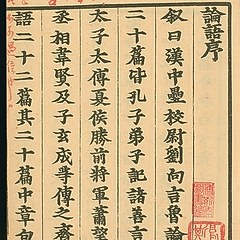 論語序
叙曰漢中壘校尉劉向言魯論
二十篇皆孔子弟子記諸善言
太子太傅夏侯勝前將軍蕭望
丞相韋賢及子玄成等傳之齊
語二十二篇其二十篇中章句